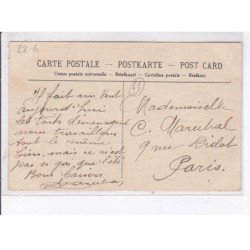 22 6
CARTE POSTALE — POSTKARTE — POST CARD
Union postale universelle — Briefkaart — Cartolina postale — Brefkort
Il fait un vent
aujourd'hui
les toits déménagent
nous travaillons
tout le même
bien, mais ce n'est
pas si gai que l'été
Bons baisers
Mademoiselle
C. Marechal
9 rue Didot
Paris.